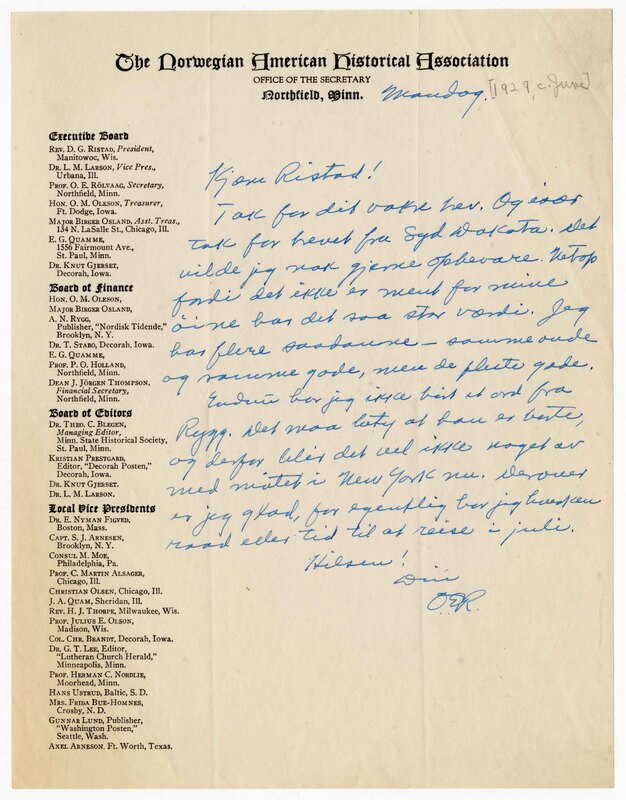 The Norwegian American Historical Association
OFFICE OF THE SECRETARY
Northfield, Minn.
Mandag. [1929, c. June]
Executive Board
REV. D. G. RISTAD, President,
Manitowoc, Wis.
DR. L. M. LARSON, Vice Pres.,
Urbana, Ill.
PROF. O. E. RÖLVAAG, Secretary,
Northfield, Minn.
HON. O. M. OLESON, Treasurer,
Ft. Dodge, Iowa.
MAJOR BIRGER OSLAND, Asst. Treas.,
134 N. LaSalle St., Chicago, Ill.
E. G. QUAMME,
1556 Fairmount Ave.,
St. Paul, Minn.
DR. KNUT GJERSET,
Decorah, Iowa.
Board of Finance
HON. O. M. OLESON,
MAJOR BIRGER OSLAND,
A. N. RYGG,
Publisher, "Nordisk Tidende,"
Brooklyn, N. Y.
DR. T. STABO, Decorah, Iowa.
E. G. QUAMME,
PROF. P. O. HOLLAND,
Northfield, Minn.
DEAN J. JÖRGEN THOMPSON,
Financial Secretary,
Northfield, Minn.
Board of Editors
DR. THEO. C. BLEGEN,
Managing Editor,
Minn. State Historical Society,
St. Paul, Minn.
KRISTIAN PRESTGARD,
Editor, "Decorah Posten,"
Decorah, Iowa.
DR. KNUT GJERSET.
DR. L. M. LARSON.
Local Vice Presidents
DR. E. NYMAN FIGVED,
Boston, Mass.
CAPT. S. J. ARNESEN,
Brooklyn, N. Y.
CONSUL M. MOE,
Philadelphia, Pa.
PROF. C. MARTIN ALSAGER,
Chicago, Ill.
CHRISTIAN OLSEN, Chicago, Ill.
J. A. QUAM, Sheridan, Ill.
REV. H. J. THORPE, Milwaukee, Wis.
PROF. JULIUS E. OLSON,
Madison, Wis.
COL. CHR. BRANDT, Decorah, Iowa.
DR. G. T. LEE, Editor,
"Lutheran Church Herald,"
Minneapolis, Minn.
PROF. HERMAN C. NORDLIE,
Moorhead, Minn.
HANS USTRUD, Baltic, S. D.
MRS. FRIDA BUE-HOMNES,
Crosby, N. D.
GUNNAR LUND, Publisher,
"Washington Posten,"
Seattle, Wash.
AXEL ARNESON, Ft. Worth, Texas.
Kjære Ristad!
Tak for dit vakre brev. Og især
tak for brevet fra Syd Dakota. Det
vilde jeg nok gjerne opbevare. Netop
fordi det ikke er ment for mine
öine har det saa stor værdi. Jeg
har flere saadanne – somme onde
og somme gode, men de fleste gode.
Endnu har jeg ikke hört et ord fra
Rygg. Det maa bety at han er borte,
og derfor blir det vel ikke noget av
med mötet i New York nu. Derover
er jeg glad, for egentlig har jeg hverken
raad eller tid til at reise i juli.
Hilsen!
Din
OER.